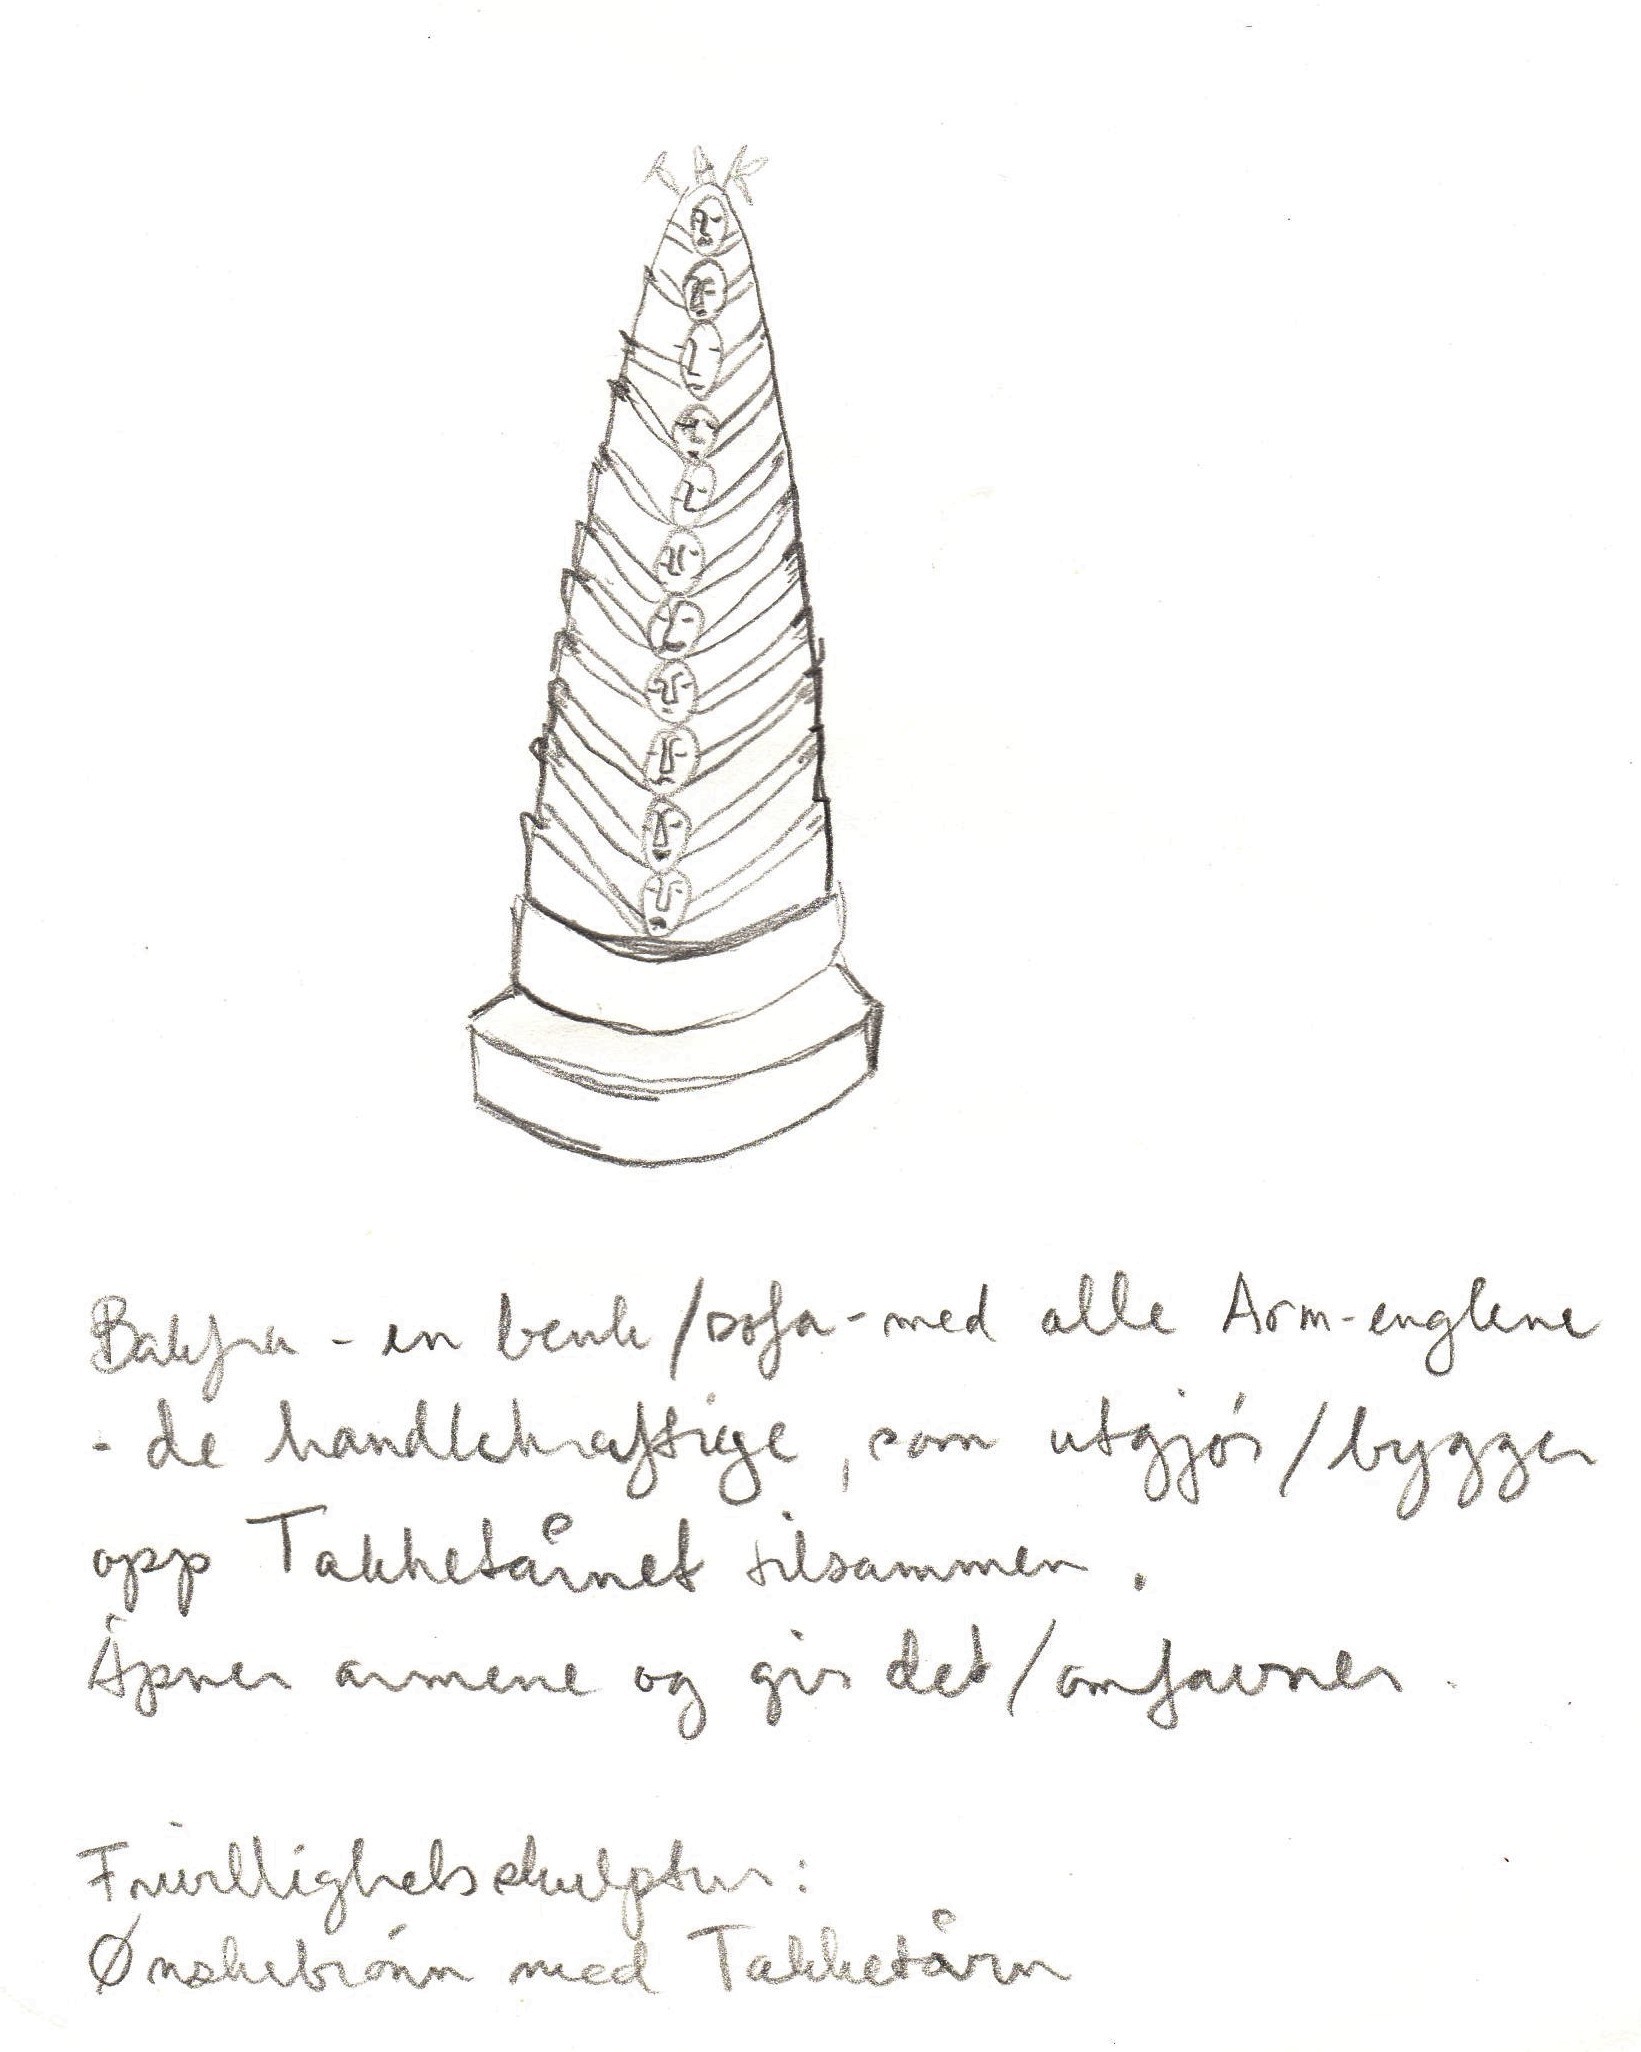 Bakfra - en benk/sofa - med alle Arm-englene
- de handlekraftige, som utgjør/bygger
opp Takketårnet tilsammen.
Åpner armene og gir det/omfavner.
Frivillighetsskulptur:
Ønskebrønn med Takketårn